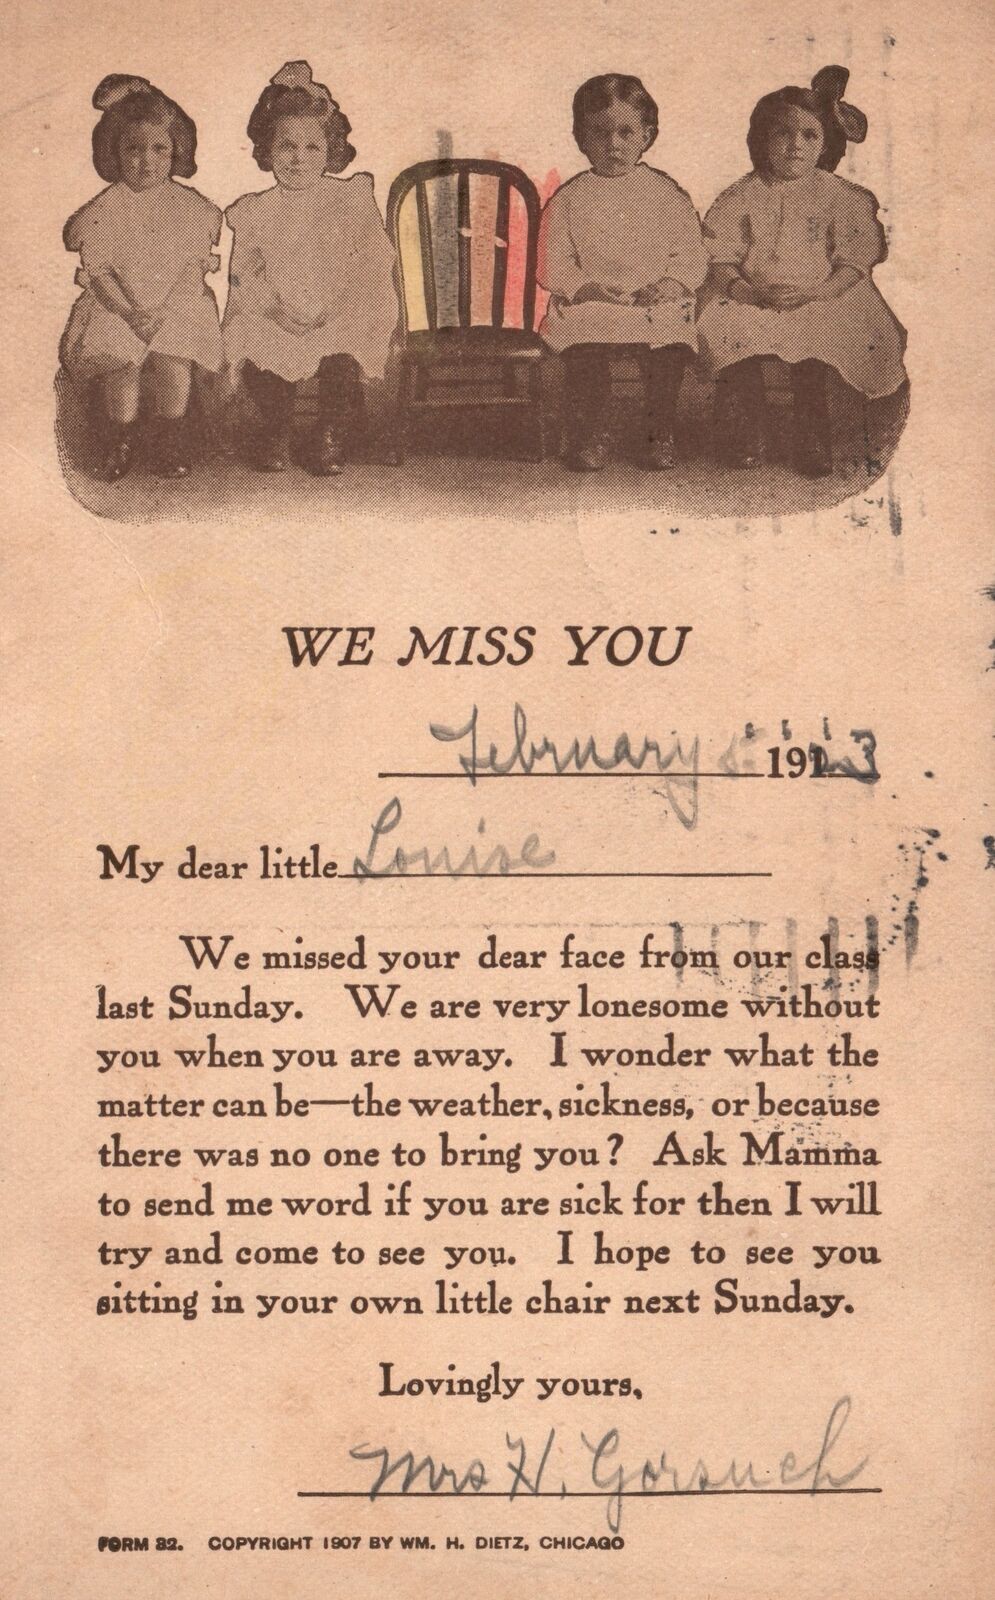 WE MISS YOU
February 5 1923
My dear little Louise
We missed your dear face from our class
last Sunday. We are very lonesome without
you when you are away. I wonder what the
matter can be—the weather, sickness, or because
there was no one to bring you? Ask Mamma
to send me word if you are sick for then I will
try and come to see you. I hope to see you
sitting in your own little chair next Sunday.
Lovingly yours,
Mrs H. Gorsuch
FORM 82. COPYRIGHT 1907 BY WM. H. DIETZ, CHICAGO